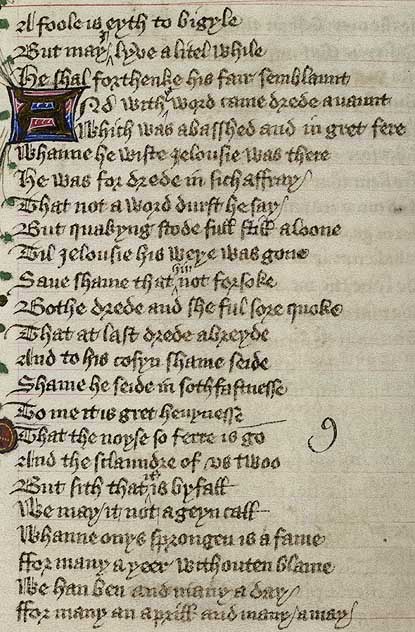 A foole is eyth to bigyle
But may I lyve a litel while
He shal forthenke his fair semblaunt
ANd with þt word came drede avaunt
Which was abasshed and in gret fere
Whanne he wiste Jelousie was there
He was for drede in sich affray
That not a word durst he say
But quakyng stode full still aloone
Til Jelousie his weye was gone
Saue shame that him not forsoke
Bothe drede and she ful sore quoke
That at last drede abreyde
And to his cosyn shame seide
Shame he seide in sothfastnesse
To me it is gret heuynesse
That the noyse so ferre is go
And the sclaundre of vs twoo
But sith that it is byfall
We may it not ageyn call
Whanne onys sprongen is a fame
ffor many a yeer withouten blame
We han ben and many a day
ffor many an aprill and many a may